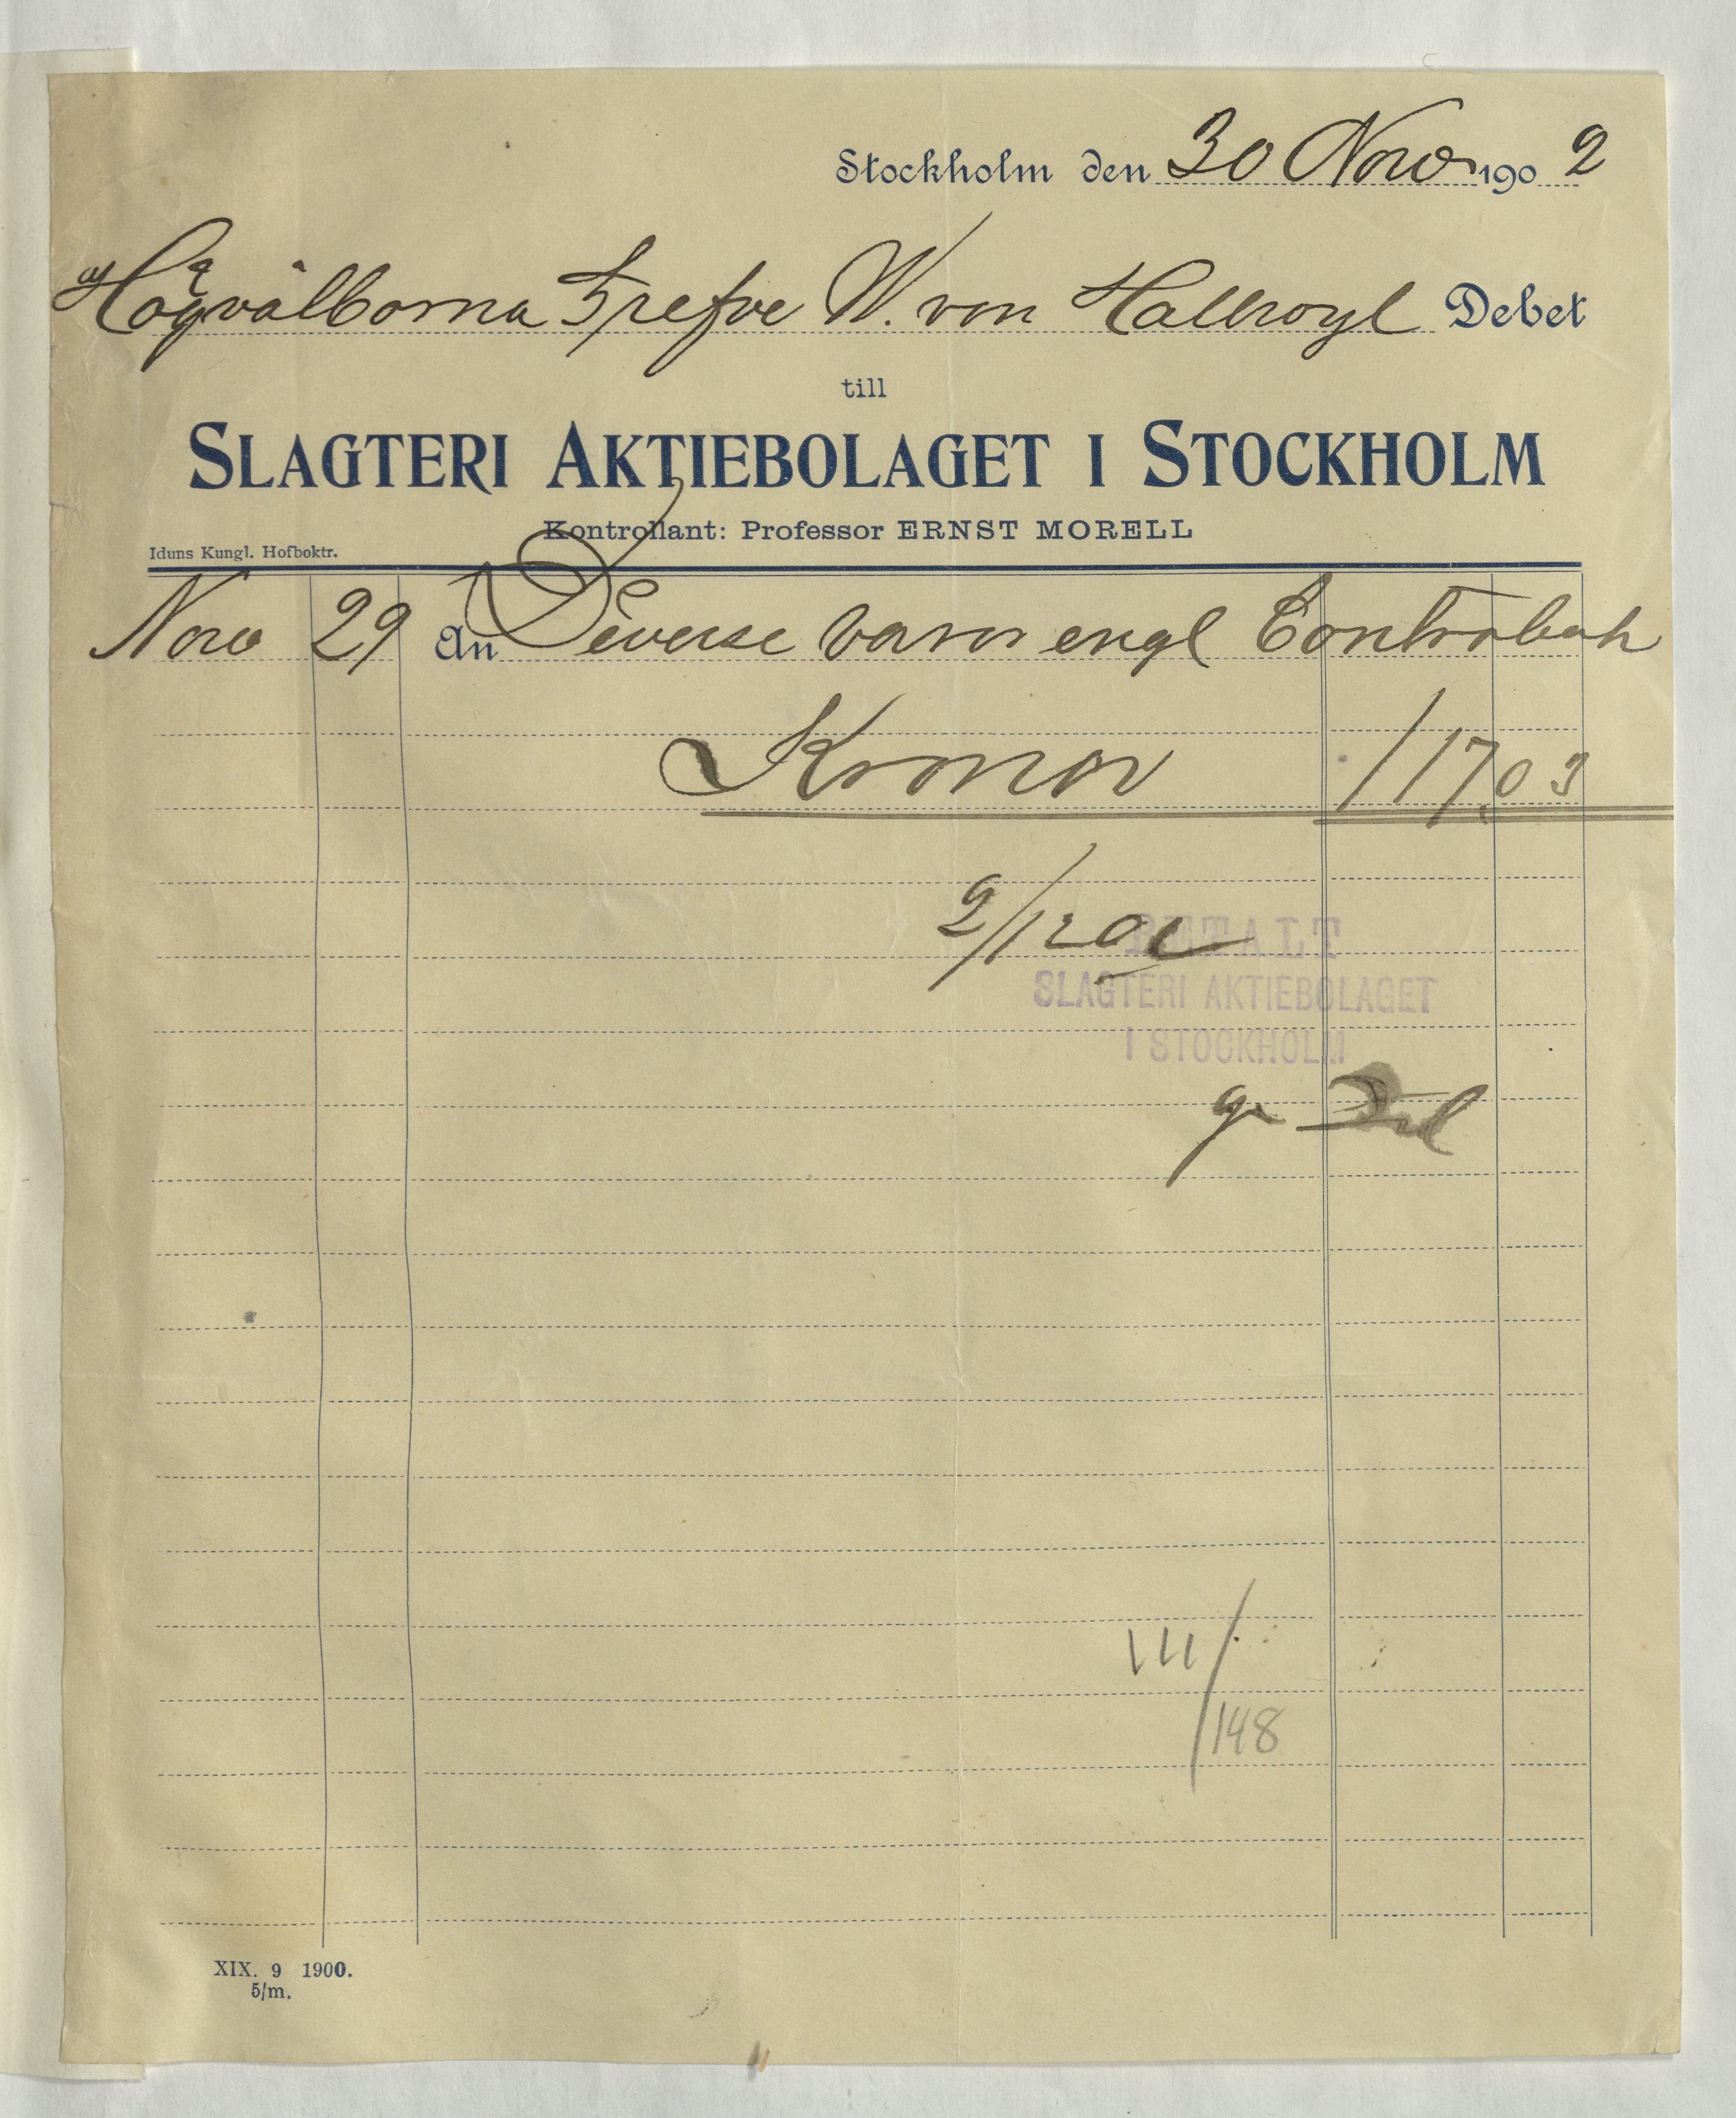 Stockholm den 30 Nov 1902
Högvälborna Grefve W. von Hallwyl Debet
till
SLAGTERI AKTIEBOLAGET I STOCKHOLM
Kontrollant: Professor ERNST MORELL
Iduns Kungl. Hofboktr.
Nov 29 An Diverse varor engl Contrabok
Kronor 117,03
2/12 02
BETALT
SLAGTERI AKTIEBOLAGET
I STOCKHOLM
111/148
XIX. 9 1900.
5/m.